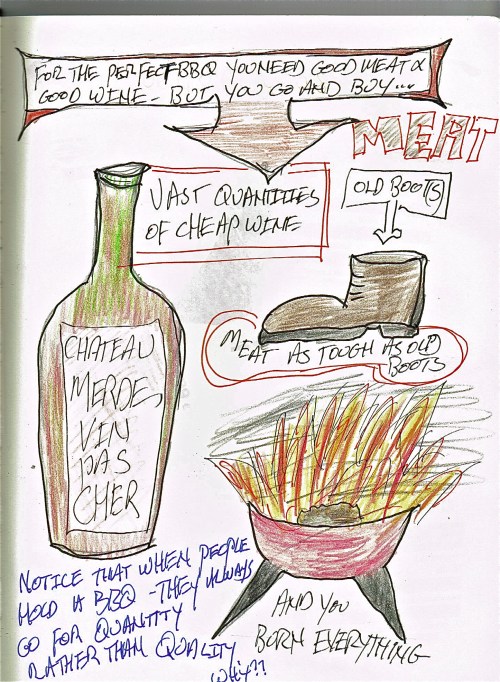 FOR THE PERFECT BBQ YOU NEED GOOD MEAT &
GOOD WINE - BUT YOU GO AND BUY...
MEAT
VAST QUANTITIES
OF CHEAP WINE
OLD BOOTS
MEAT AS TOUGH AS OLD
BOOTS
CHATEAU
MERDE,
VIN
PAS
CHER
NOTICE THAT WHEN PEOPLE
HOLD A BBQ - THEY ALWAYS
GO FOR QUANTITY
RATHER THAN QUALITY
WHY??
AND YOU
BURN EVERYTHING